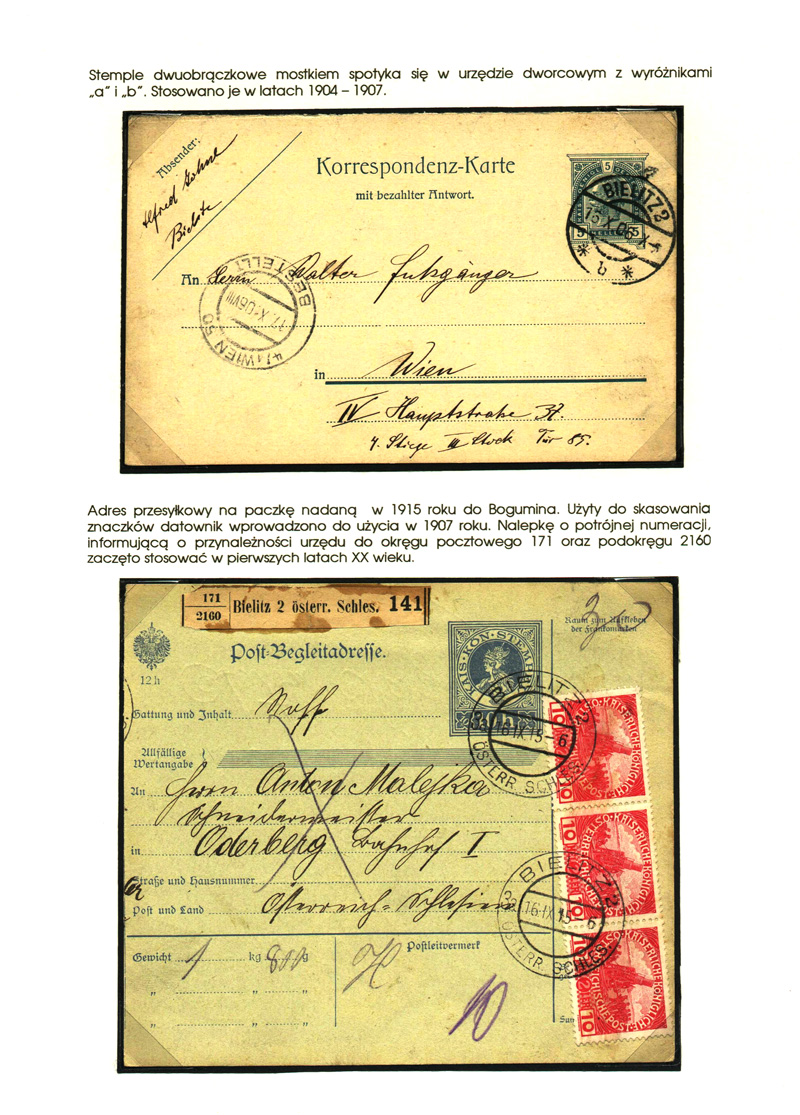 Stemple dwuobrączkowe mostkiem spotyka się w urzędzie dworcowym z wyróżnikami
„a” i „b”. Stosowano je w latach 1904 – 1907.
Absender:
Alfred
Korrespondenz-Karte
mit bezahlter Antwort.
5
5 HELLER 5
BIELITZ 2
15.X.06
An Herrn Walter
BESTELLT
17.X.06 VIII
4/1 WIEN 50
in Wien
IV Hauptstraße 37.
4. Stiege III Stock Tür 85.
Adres przesyłkowy na paczkę nadaną w 1915 roku do Bogumina. Użyty do skasowania
znaczków datownik wprowadzono do użycia w 1907 roku. Nalepkę o potrójnej numeracji,
informującą o przynależności urzędu do okręgu pocztowego 171 oraz podokręgu 2160
zaczęto stosować w pierwszych latach XX wieku.
171
2160
Bielitz 2 österr. Schles. 141
Raum zum Aufkleben
der Frankomarken
Post-Begleitadresse.
KAIS·KÖN·STEMPEL
12 h
BIELITZ 2
16.IX.15
ÖSTERR. SCHLES.
Gattung und Inhalt Stoff
Allfällige
Wertangabe
An Herrn Anton Malejka
Schneidermeister
in Oderberg Bahnhof I
Straße und Hausnummer
Post und Land Österreich-Schlesien
BIELITZ 2
16.IX.15
ÖSTERR. SCHLES.
10 KAISERLICHEKÖNIGLICHE ÖSTERREICHISCHEPOST 10
10 KAISERLICHEKÖNIGLICHE ÖSTERREICHISCHEPOST 10
10 KAISERLICHEKÖNIGLICHE ÖSTERREICHISCHEPOST 10
Gewicht 1 kg 800 g
Postleitvermerk
" "
" "
10